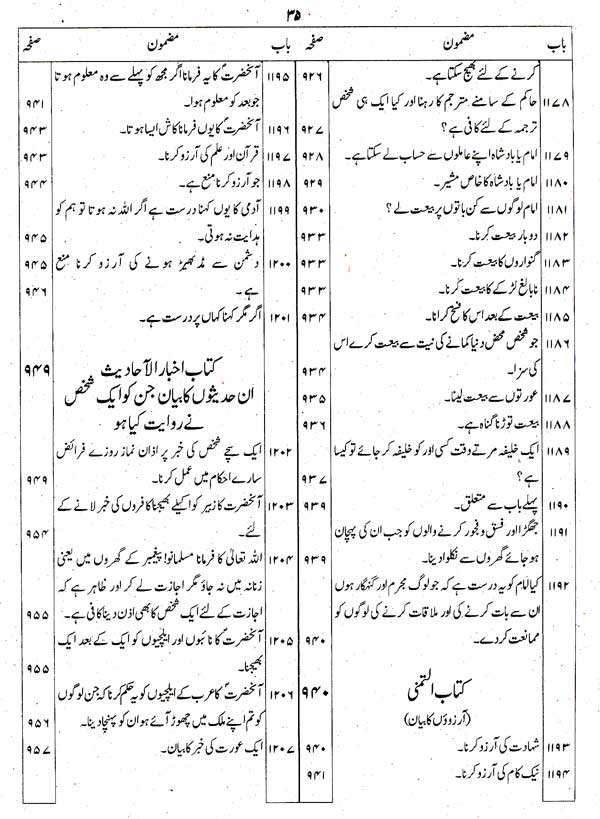 ۳۵
باب مضمون صفحہ
کرنے کے لئے بھیج سکتا ہے۔ ۹۲۶
۱۱۷۸ حاکم کے سامنے مترجم کا رہنا اور کیا ایک ہی شخص
ترجمہ کے لئے کافی ہے؟ ۹۲۷
۱۱۷۹ امام یا بادشاہ اپنے عاملوں سے حساب لے سکتا ہے۔ ۹۲۸
۱۱۸۰ امام یا بادشاہ کا خاص مشیر۔ ۹۲۹
۱۱۸۱ امام لوگوں سے کن باتوں پر بیعت لے؟ ۹۳۰
۱۱۸۲ دوبار بیعت کرنا۔ ۹۳۳
۱۱۸۳ گنواروں کا بیعت کرنا۔ ۹۳۳
۱۱۸۴ نابالغ لڑکے کا بیعت کرنا۔ ۹۳۳
۱۱۸۵ بیعت کے بعد اس کا فسخ کرانا۔ ۹۳۴
۱۱۸۶ جو شخص محض دنیا کمانے کی نیت سے بیعت کرے اس
کی سزا۔ ۹۳۴
۱۱۸۷ عورتوں سے بیعت لینا۔ ۹۳۵
۱۱۸۸ بیعت توڑنا گناہ ہے۔ ۹۳۶
۱۱۸۹ ایک خلیفہ مرتے وقت کسی اور کو خلیفہ کر جائے تو کیسا
ہے؟ ۹۳۷
۱۱۹۰ پہلے باب سے متعلق۔ ۹۳۹
۱۱۹۱ جھگڑا اور فسق و فجور کرنے والوں کو جب ان کی پہچان
ہو جائے گھروں سے نکلوا دینا۔ ۹۳۹
۱۱۹۲ کیا امام کو یہ درست ہے کہ جو لوگ مجرم اور گنہگار ہوں
ان سے بات کرنے کی اور ملاقات کرنے کی لوگوں کو
ممانعت کر دے۔ ۹۴۰
کتاب التمنی ۹۴۰
(آرزوؤں کا بیان)
۱۱۹۳ شہادت کی آرزو کرنا۔ ۹۴۰
۱۱۹۴ نیک کام کی آرزو کرنا۔ ۹۴۱
باب مضمون صفحہ
۱۱۹۵ آنحضرتؐ کا یہ فرمانا اگر مجھ کو پہلے سے وہ معلوم ہوتا
جو بعد کو معلوم ہوا۔ ۹۴۱
۱۱۹۶ آنحضرتؐ کا یوں فرمانا کاش ایسا ہوتا۔ ۹۴۳
۱۱۹۷ قرآن اور علم کی آرزو کرنا۔ ۹۴۳
۱۱۹۸ جو آرزو کرنا منع ہے۔ ۹۴۴
۱۱۹۹ آدمی کا یوں کہنا درست ہے اگر اللہ نہ ہوتا تو ہم کو
ہدایت نہ ہوتی۔ ۹۴۵
۱۲۰۰ دشمن سے مڈبھیڑ ہونے کی آرزو کرنا منع ۹۴۵
ہے۔ ۹۴۶
۱۲۰۱ اگر مگر کہنا کہاں پر درست ہے۔
کتاب اخبار الآحادیث ۹۴۹
ان حدیثوں کا بیان جن کو ایک شخص
نے روایت کیا ہو
۱۲۰۲ ایک سچے شخص کی خبر پر اذان نماز روزے فرائض
سارے احکام میں عمل کرنا۔ ۹۴۹
۱۲۰۳ آنحضرتؐ کا زبیر کو اکیلے بھیجنا کافروں کی خبر لانے کے
لئے۔ ۹۵۴
۱۲۰۴ اللہ تعالیٰ کا فرمانا مسلمانو! پیغمبر کے گھروں میں یعنی
زنانہ میں نہ جاؤ مگر اجازت لے کر اور ظاہر ہے کہ
اجازت کے لئے ایک شخص کا بھی اذن دینا کافی ہے۔ ۹۵۵
۱۲۰۵ آنحضرتؐ کا نائبوں اور ایلچیوں کو ایک کے بعد ایک
بھیجنا۔ ۹۵۵
۱۲۰۶ آنحضرتؐ کا عرب کے ایلچیوں کو یہ حکم کرنا کہ جن لوگوں
کو تم اپنے ملک میں چھوڑ آئے ہو ان کو پہنچا دینا۔ ۹۵۶
۱۲۰۷ ایک عورت کی خبر کا بیان۔ ۹۵۷